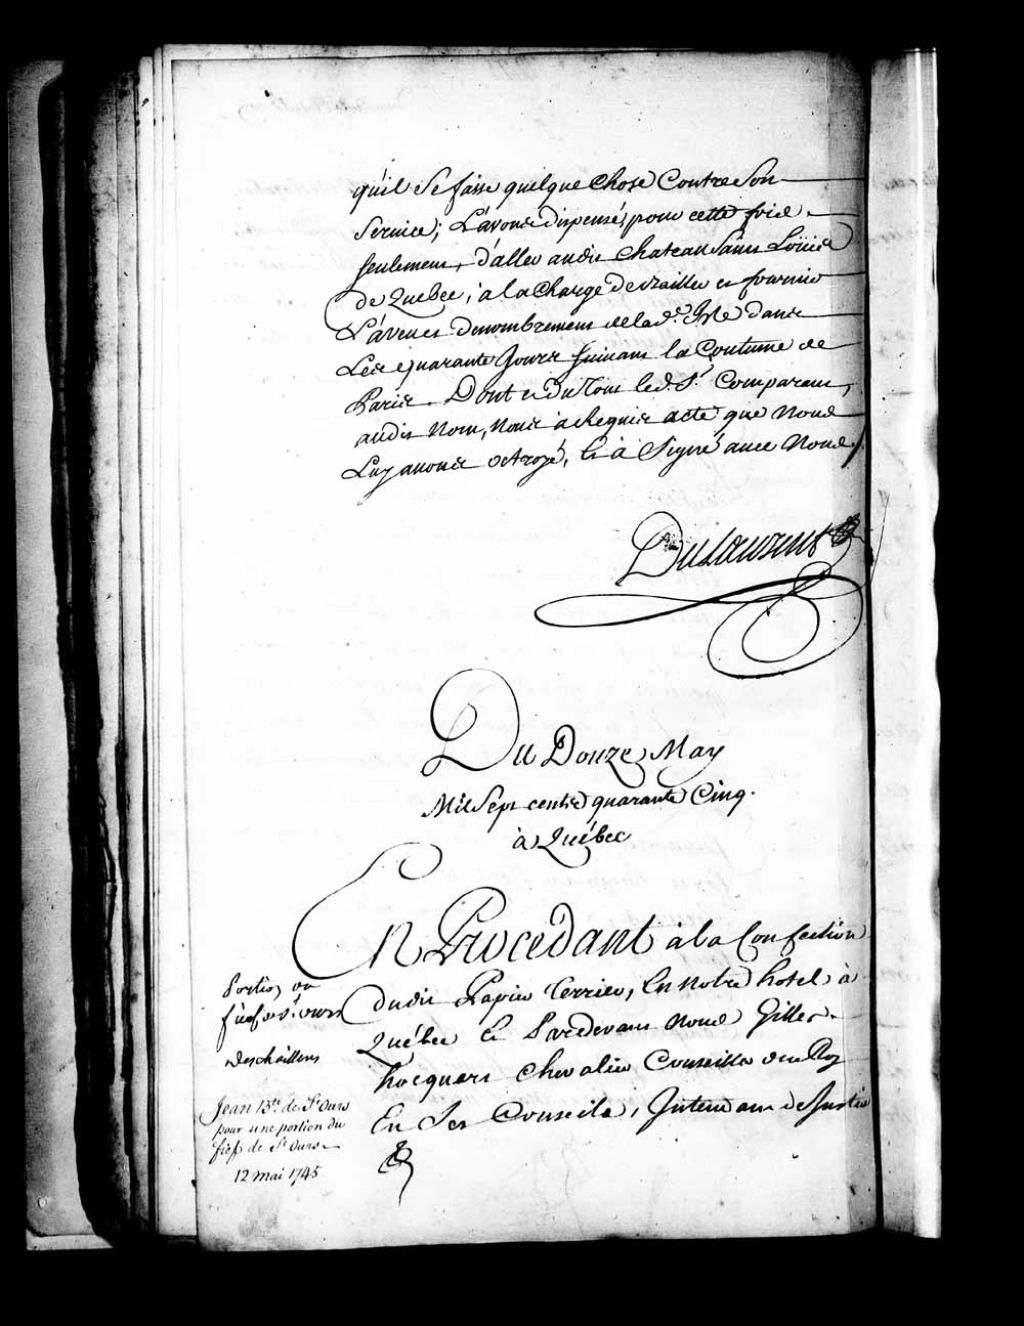 qu'il se fasse quelque chose Contre Son
Service; L'avons dispensé, pour cette fois
seulement, d'aller audit Chateau Saint Loüis
de Quebec; a la Charge de Bailler et fournir
L'aveu et Denombrement de lad.e Isle dans
Les quarante Jours suivans la Coutume de
Paris. Dont et du Tout led. S.r Comparant,
audit Nom, Nous à Requis acte que Nous
Luy avons octroyé, Et à Signé avec Nous
DuLaurent
Du Douze May
Mil Sept cents quarante Cinq.
à Québec
En Procedant à la Confection
dudit Papier Terrier, En notre hotel à
Québec Et Pardevant Nous Gilles
hocquart Chevalier Conseiller du Roy
En Ses Conseils, Intendant de Justice
Portion du
fief de St ours
deschaillons
Jean B.te de St Ours
pour une portion du
fief de St Ours
12 Mai 1745